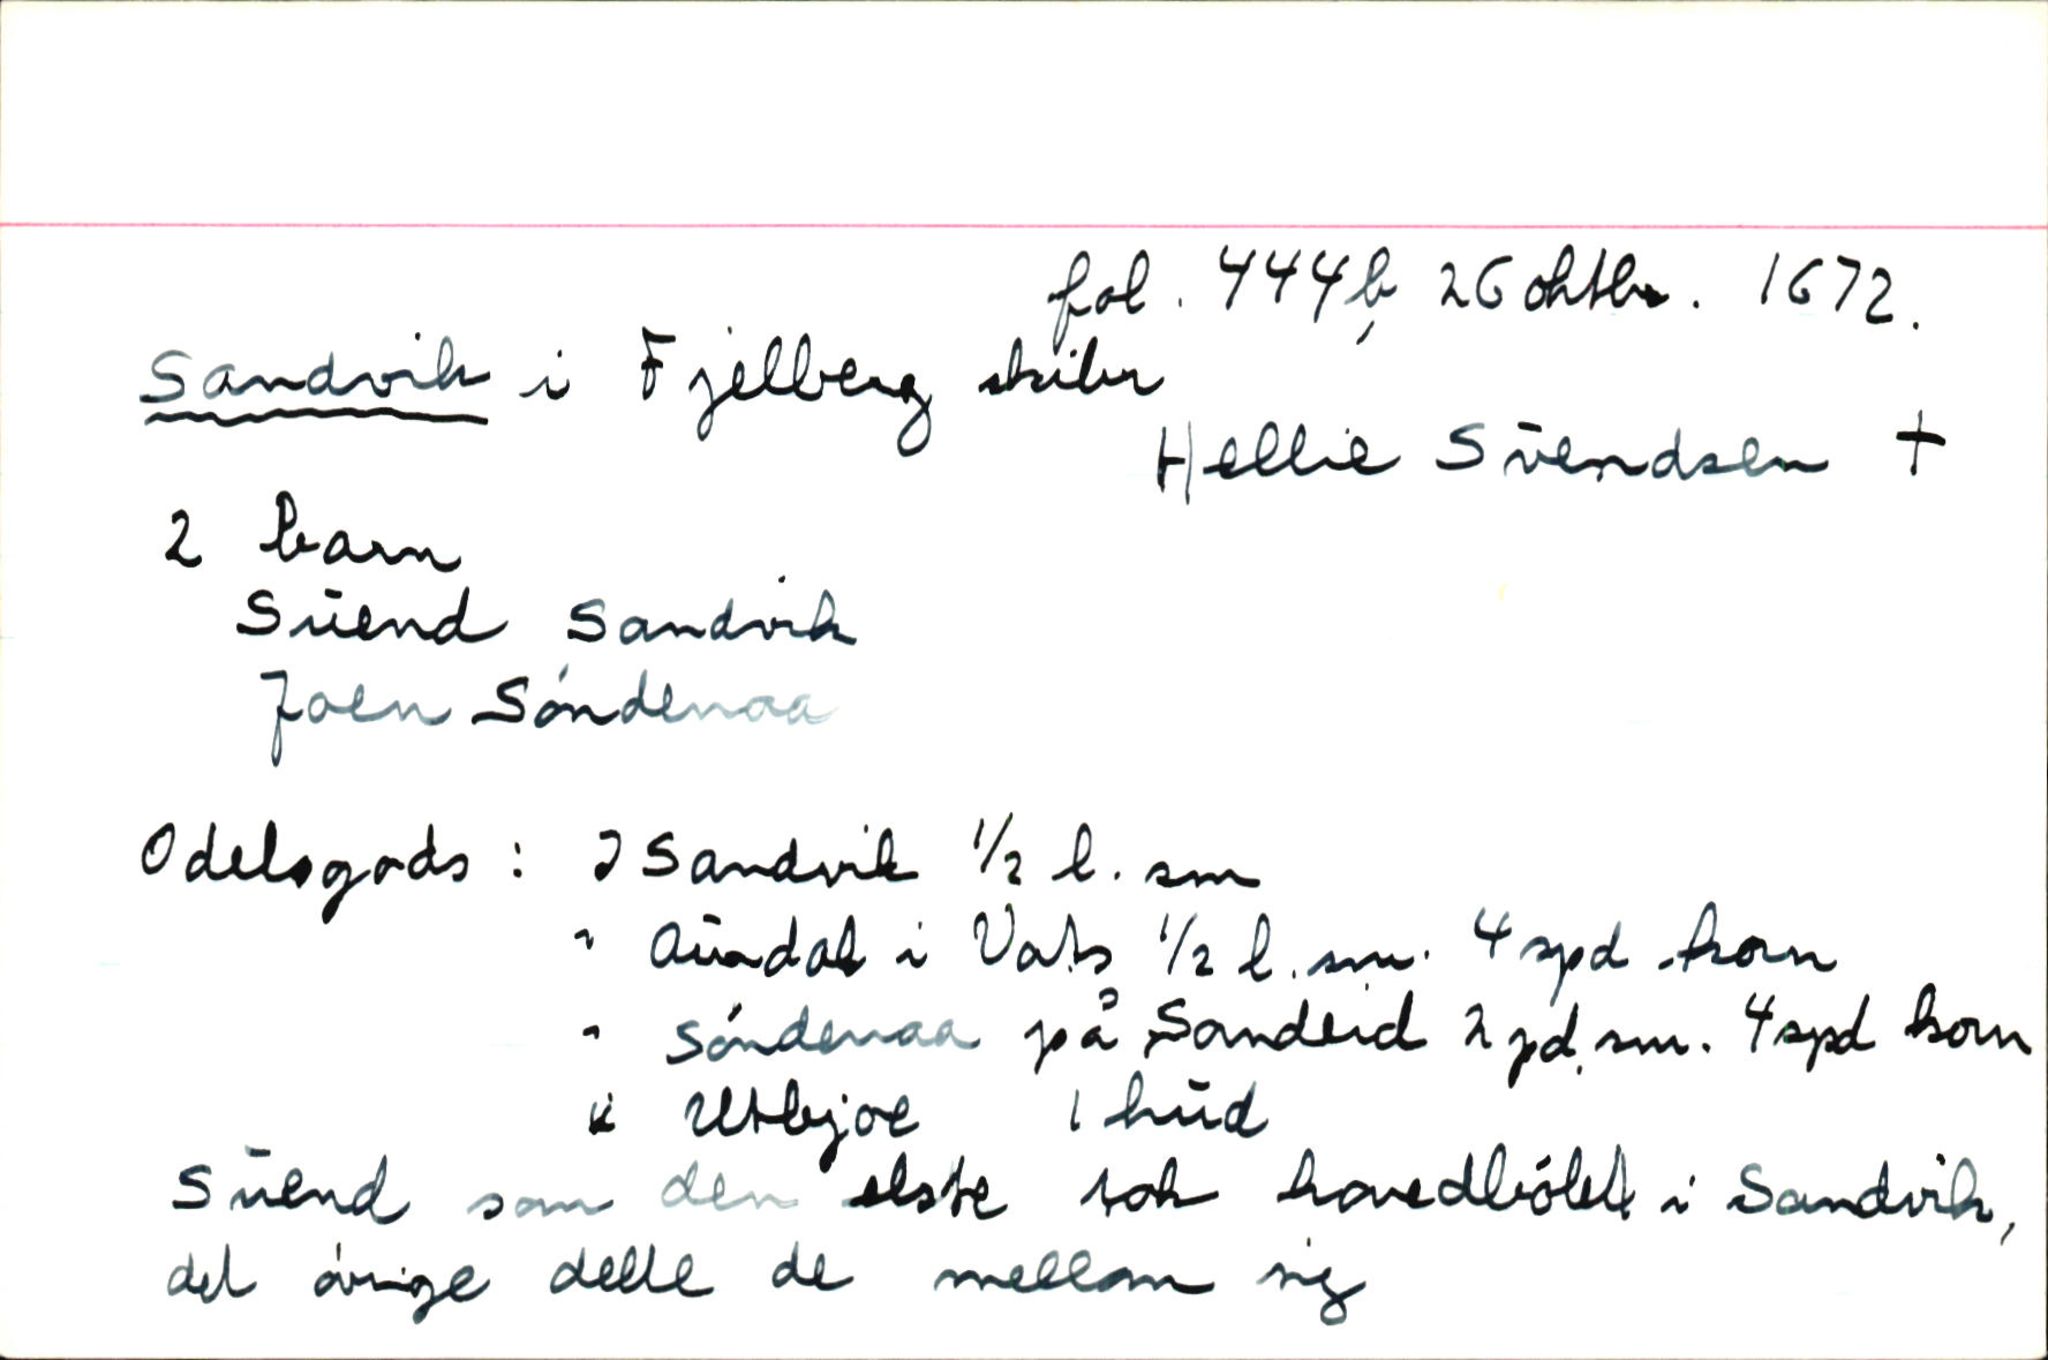 fol. 444b, 26 oktbr. 1672.
Sandvik i Fjelberg skibr
Hellie Svendsen †
2 barn
Suend Sandvik
Joen Söndenaa
Odelsgods: I Sandvik 1/2 l. sm
" Aundal i Vats 1/2 l. sm. 4 spd korn
" Söndenaa på Sandeid 2 pd. sm. 4 spd korn
" Utbjoe 1 hud
Suend som den elste tok hovedbölet i Sandvik,
det övrige delte de mellom sig